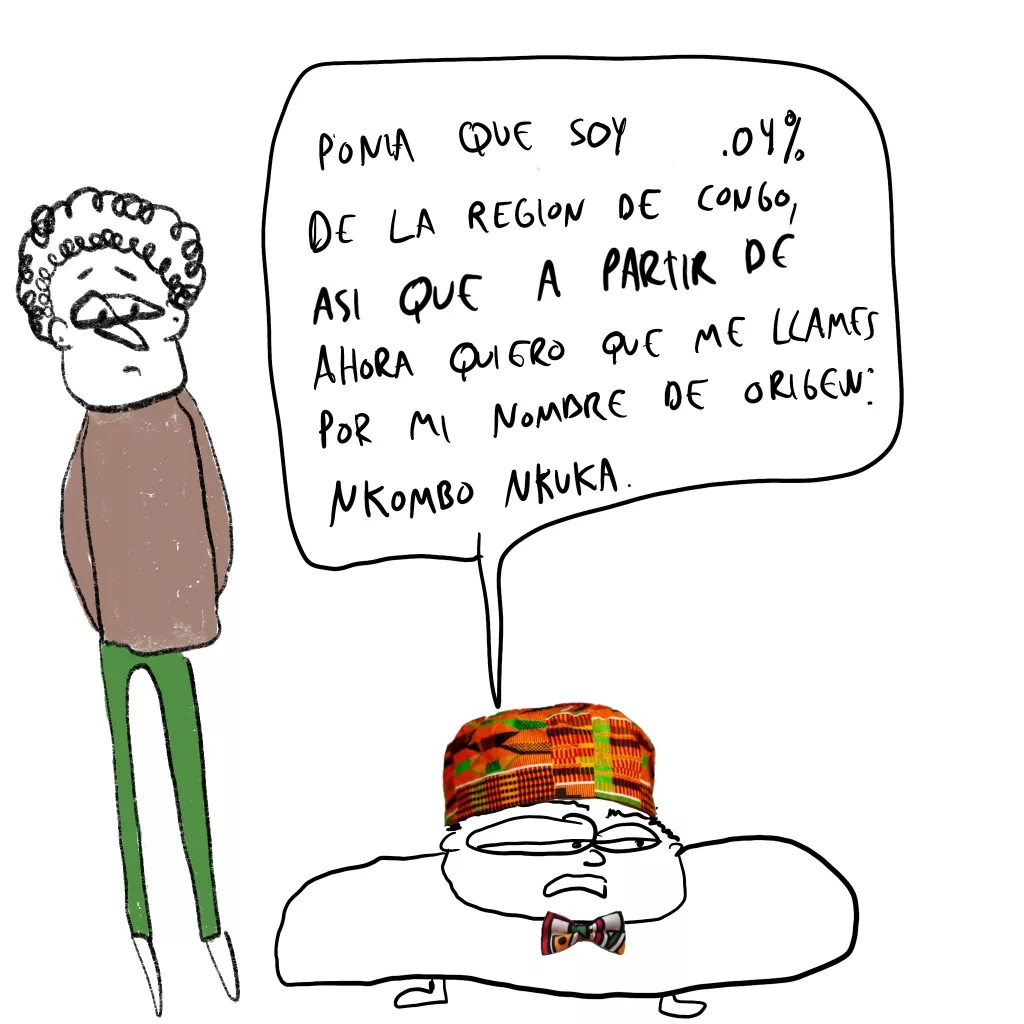 PONIA QUE SOY .04%
DE LA REGION DE CONGO,
ASI QUE A PARTIR DE
AHORA QUIERO QUE ME LLAMES
POR MI NOMBRE DE ORIGEN:
NKOMBO NKUKA.